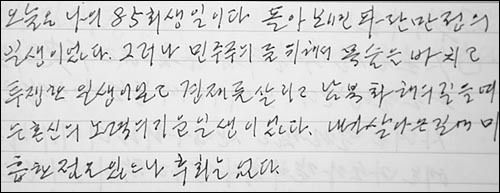 오늘은 나의 85회 생일이다. 돌아보면 파란만장의
일생이었다. 그러나 민주주의를 위해서 목숨을 바치고
투쟁한 일생이었고 경제를 살리고 남북 화해의 길을 여
는 혼신의 노력의 기간 일생이었다. 내가 살아온 길에 미
흡한 점은 있으나 후회는 없다.